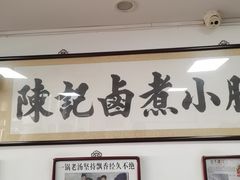 陳記鹵煮小
一锅老汤坚持飘香经久不绝